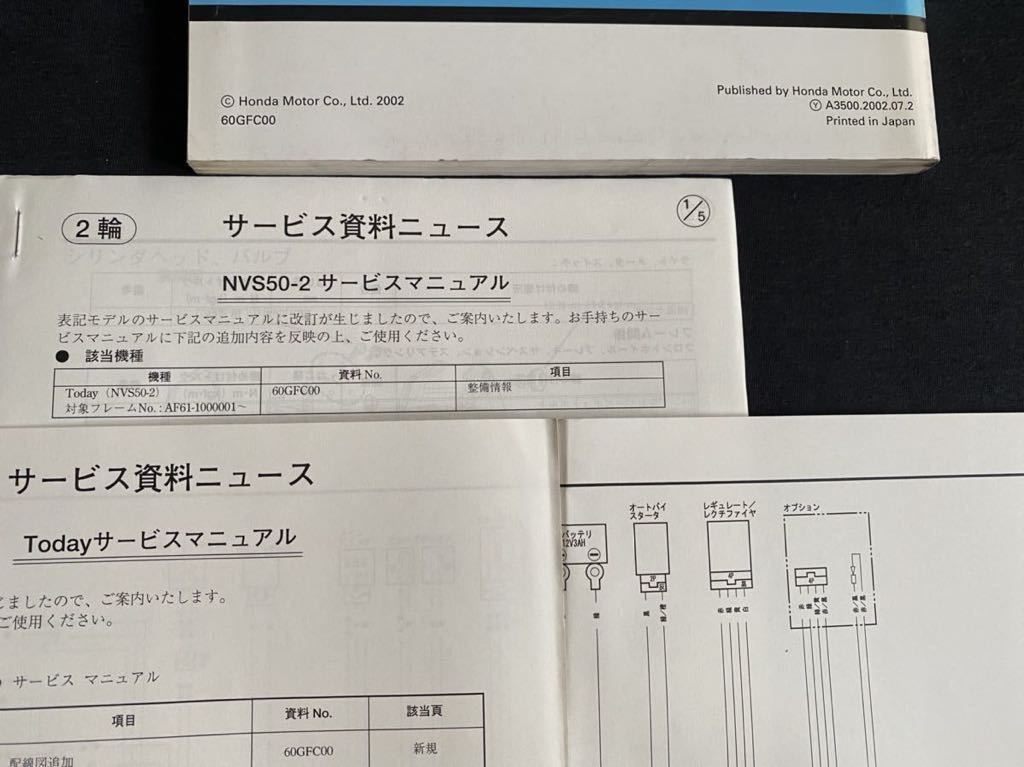 © Honda Motor Co., Ltd. 2002
60GFC00
Published by Honda Motor Co., Ltd.
Ⓨ A3500.2002.07.2
Printed in Japan
2輪
サービス資料ニュース
1/5
NVS50-2 サービスマニュアル
表記モデルのサービスマニュアルに改訂が生じましたので、ご案内いたします。お手持ちのサー
ビスマニュアルに下記の追加内容を反映の上、ご使用ください。
● 該当機種
機種 資料 No. 項目
Today（NVS50-2） 60GFC00 整備情報
対象フレームNo.：AF61-1000001～
サービス資料ニュース
Todayサービスマニュアル
じましたので、ご案内いたします。
ご使用ください。
サービス マニュアル
項目 資料 No. 該当頁
配線図追加 60GFC00 新規
バッテリ
12V3AH
オートバイ
スタータ
2P
黒 緑/橙
レギュレート/
レクチファイヤ
4P
赤 緑 黄 白
オプション
4P
赤 緑 緑/黄 赤/黒
緑